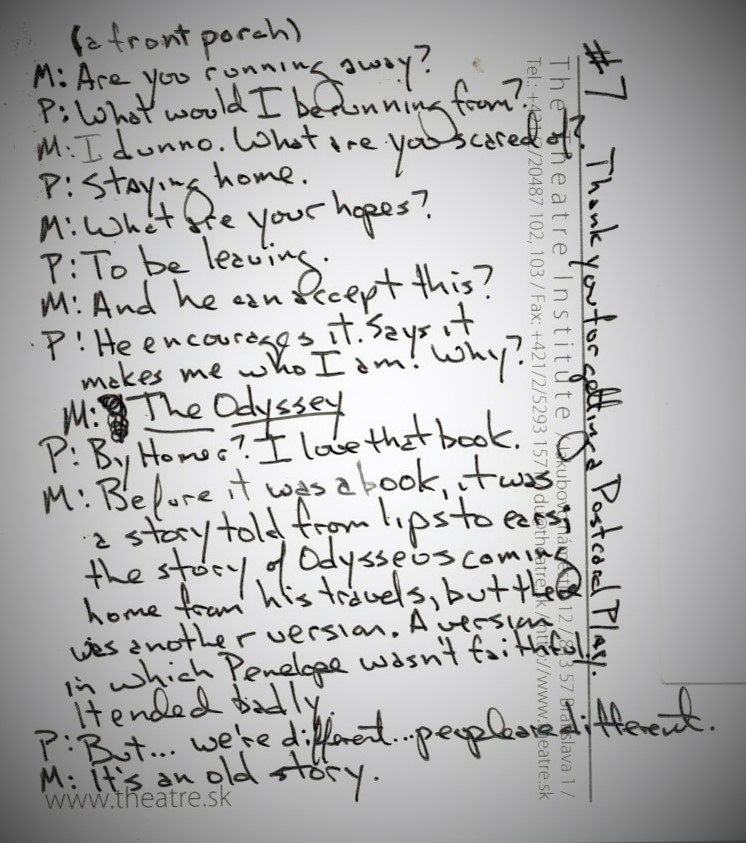 (a front porch)
M: Are you running away?
P: What would I be running from?
M: I dunno. What are you scared of?
P: Staying home.
M: What are your hopes?
P: To be leaving.
M: And he can accept this?
P: He encourages it. Says it
makes me who I am! Why?
M: The Odyssey
P: By Homer? I love that book.
M: Before it was a book, it was
a story told from lips to ears,
the story of Odysseus coming
home from his travels, but there
was another version. A version
in which Penelope wasn't faithful.
It ended badly.
P: But... we're different... people are different.
M: It's an old story.
www.theatre.sk
#7 Thank you for getting a Postcard Play.
The Theatre Institute